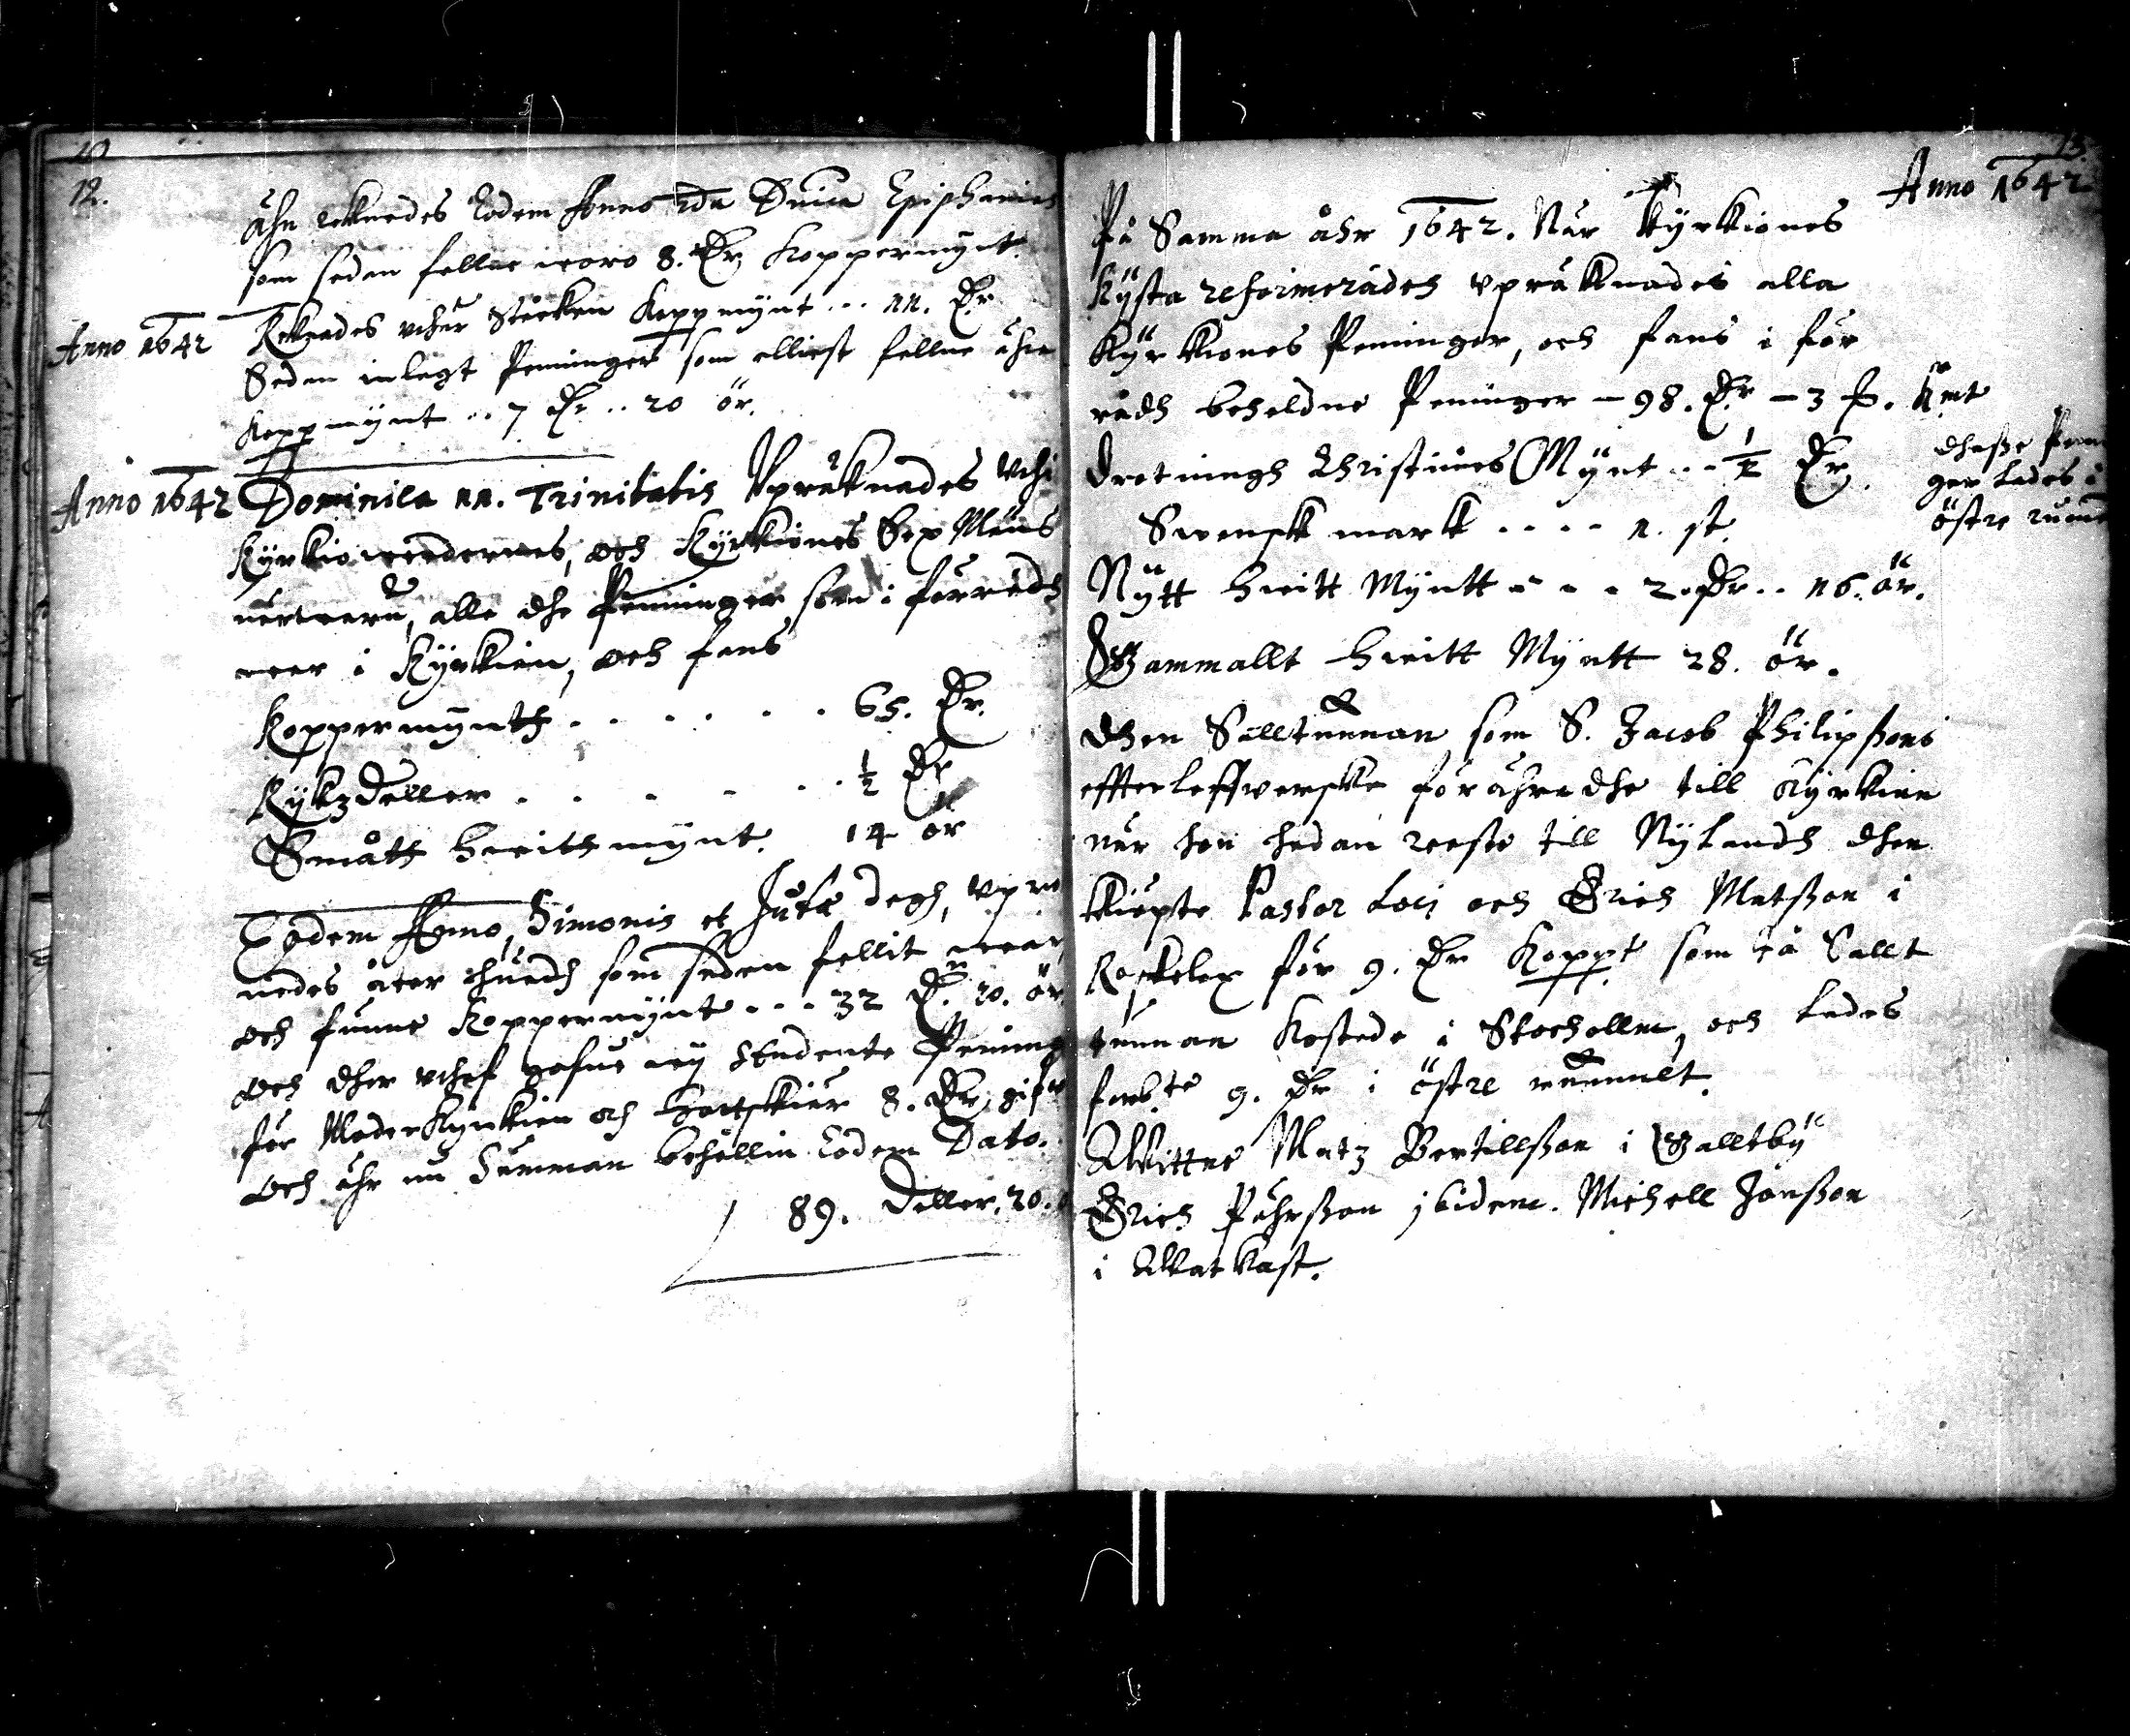 12.
åhn räknades Eodem Anno 2da Dnica Epiphanies
som sedan fellne woro 8. Dr Koppermynt.
Anno 1642 Reknades uthur Stocken Koppmynt .. 11. Dr
Sedan inlagt Penninger som elliest fellne ähre
Koppmynt .. 7 Dr .. 20 ör.
Anno 1642 Dominica 11. Trinitatis Vpräknades uthi
Kyrkiowerdernes, och Kyrkiones Sex Mäns
närwaru, alle dhe Penninger som i förrådh
war i Kyrkian, och fans
Koppermynth . . . . . . 65. Dr.
Rykzdaller . . . . . ½ Dr
Smått hwith mynt. 14 ör
Eodem Anno, Simonis et Judæ degh, vpräk
nades åter thuadh som sedan fellit war,
och funne Koppermynt . . . 32 D. 20. ör
och dher uthaf gafue wij Studente Pening
för Moder Kyrkien och 8. Dr
och ähr nu Summan behållin Eodem Dato.
89. Daller. 20.
13.
Anno 1642
På Samma åhr 1642. När Kyrkiones
Kysta reformerades vpräknades alla
Kyrkiones Peninger, och fans i för
rådh behåldne Peninger – 98. Dr – 3 Kmt
Drotningh Christines Mynt . . ½ Dr.
dhesse Penin
ger lades i
östre
Swensk mark . . . . 1. st.
Nytt hwitt Myntt . . . 2. Dr .. 16. ör.
Gammallt hwitt Myntt 28. ör.
Dhen Salltunnan som S. Jacob Philipßons
effterleffwerske förährade till Kyrkian
när hon hedan reeste till Nylandh dhen
kiöpte Pastor Loci och Erich Matßon i
för 9. Dr Koppt som då Sallt
tunnan Kostade i Stocholm, och lades
9. Dr i östre
Wittne Matz Bertillßon i Galltby
Erich Påhrßon ibidem. Michell Jonßon
i Watkast.